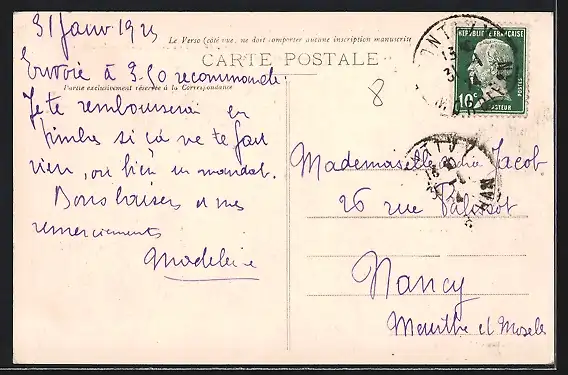 31 Janv 1925
Le Verso (côté vue, ne doit comporter aucune inscription manuscrite
CARTE POSTALE
Partie exclusivement réservée à la Correspondance
Envoie à 3.50 recommandé.
Je te rembourserai en
timbres si ça ne te fait
rien, ou bien un mandat.
Bons baisers et mes
remerciements
Madeleine
8
REPUBLIQUE FRANÇAISE
POSTES
PASTEUR
Mademoiselle Jacob
26 rue Palissot
Nancy
Meurthe et Moselle